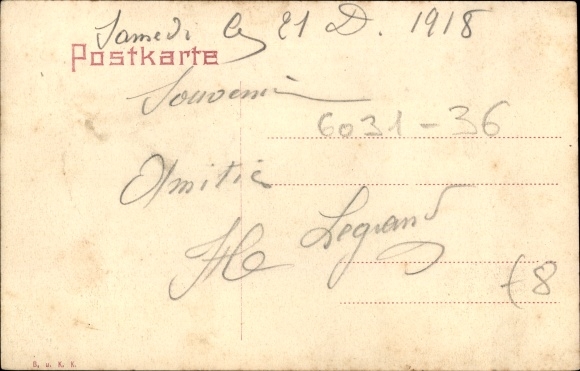 Samedi le 21 D. 1918
Postkarte
Souvenir
6031-36
Amitié
Legrand
€8
B. u. K. K.